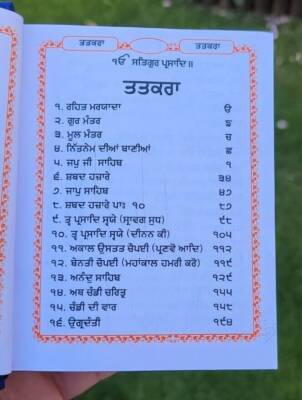 ਤਤਕਰਾ ਤਤਕਰਾ
ੴ ਸਤਿਗੁਰ ਪ੍ਰਸਾਦਿ॥
ਤਤਕਰਾ
੧. ਰਹਿਤ ਮਰਯਾਦਾ ੳ
੨. ਗੁਰ ਮੰਤਰ ਙ
੩. ਮੂਲ ਮੰਤਰ ਚ
੪. ਨਿੱਤਨੇਮ ਦੀਆਂ ਬਾਣੀਆਂ ਛ
੫. ਜਪੁ ਜੀ ਸਾਹਿਬ ੧
੬. ਸ਼ਬਦ ਹਜ਼ਾਰੇ ੩੪
੭. ਜਾਪੁ ਸਾਹਿਬ ੪੭
੮. ਸ਼ਬਦ ਹਜ਼ਾਰੇ ਪਾਃ ੧੦ ੮੭
੯. ਤ੍ਵ ਪ੍ਰਸਾਦਿ ਸ੍ਵਯੇ (ਸ੍ਰਾਵਗ ਸੁਧ) ੯੮
੧੦. ਤ੍ਵ ਪ੍ਰਸਾਦਿ ਸ੍ਵਯੇ (ਦੀਨਨ ਕੀ) ੧੦੪
੧੧. ਅਕਾਲ ਉਸਤਤ ਚੌਪਈ (ਪ੍ਰਣਵੋ ਆਦਿ) ੧੧੨
੧੨. ਬੇਨਤੀ ਚੌਪਈ (ਮਹਾਂਕਾਲ ਹਮਰੀ ਕਰੋ) ੧੧੯
੧੩. ਅਨੰਦੁ ਸਾਹਿਬ ੧੨੯
੧੪. ਅਥ ਚੰਡੀ ਚਰਿਤ੍ਰ ੧੫੫
੧੫. ਚੰਡੀ ਦੀ ਵਾਰ ੧੫੮
੧੬. ਉਗ੍ਰਦੰਤੀ ੧੯੪